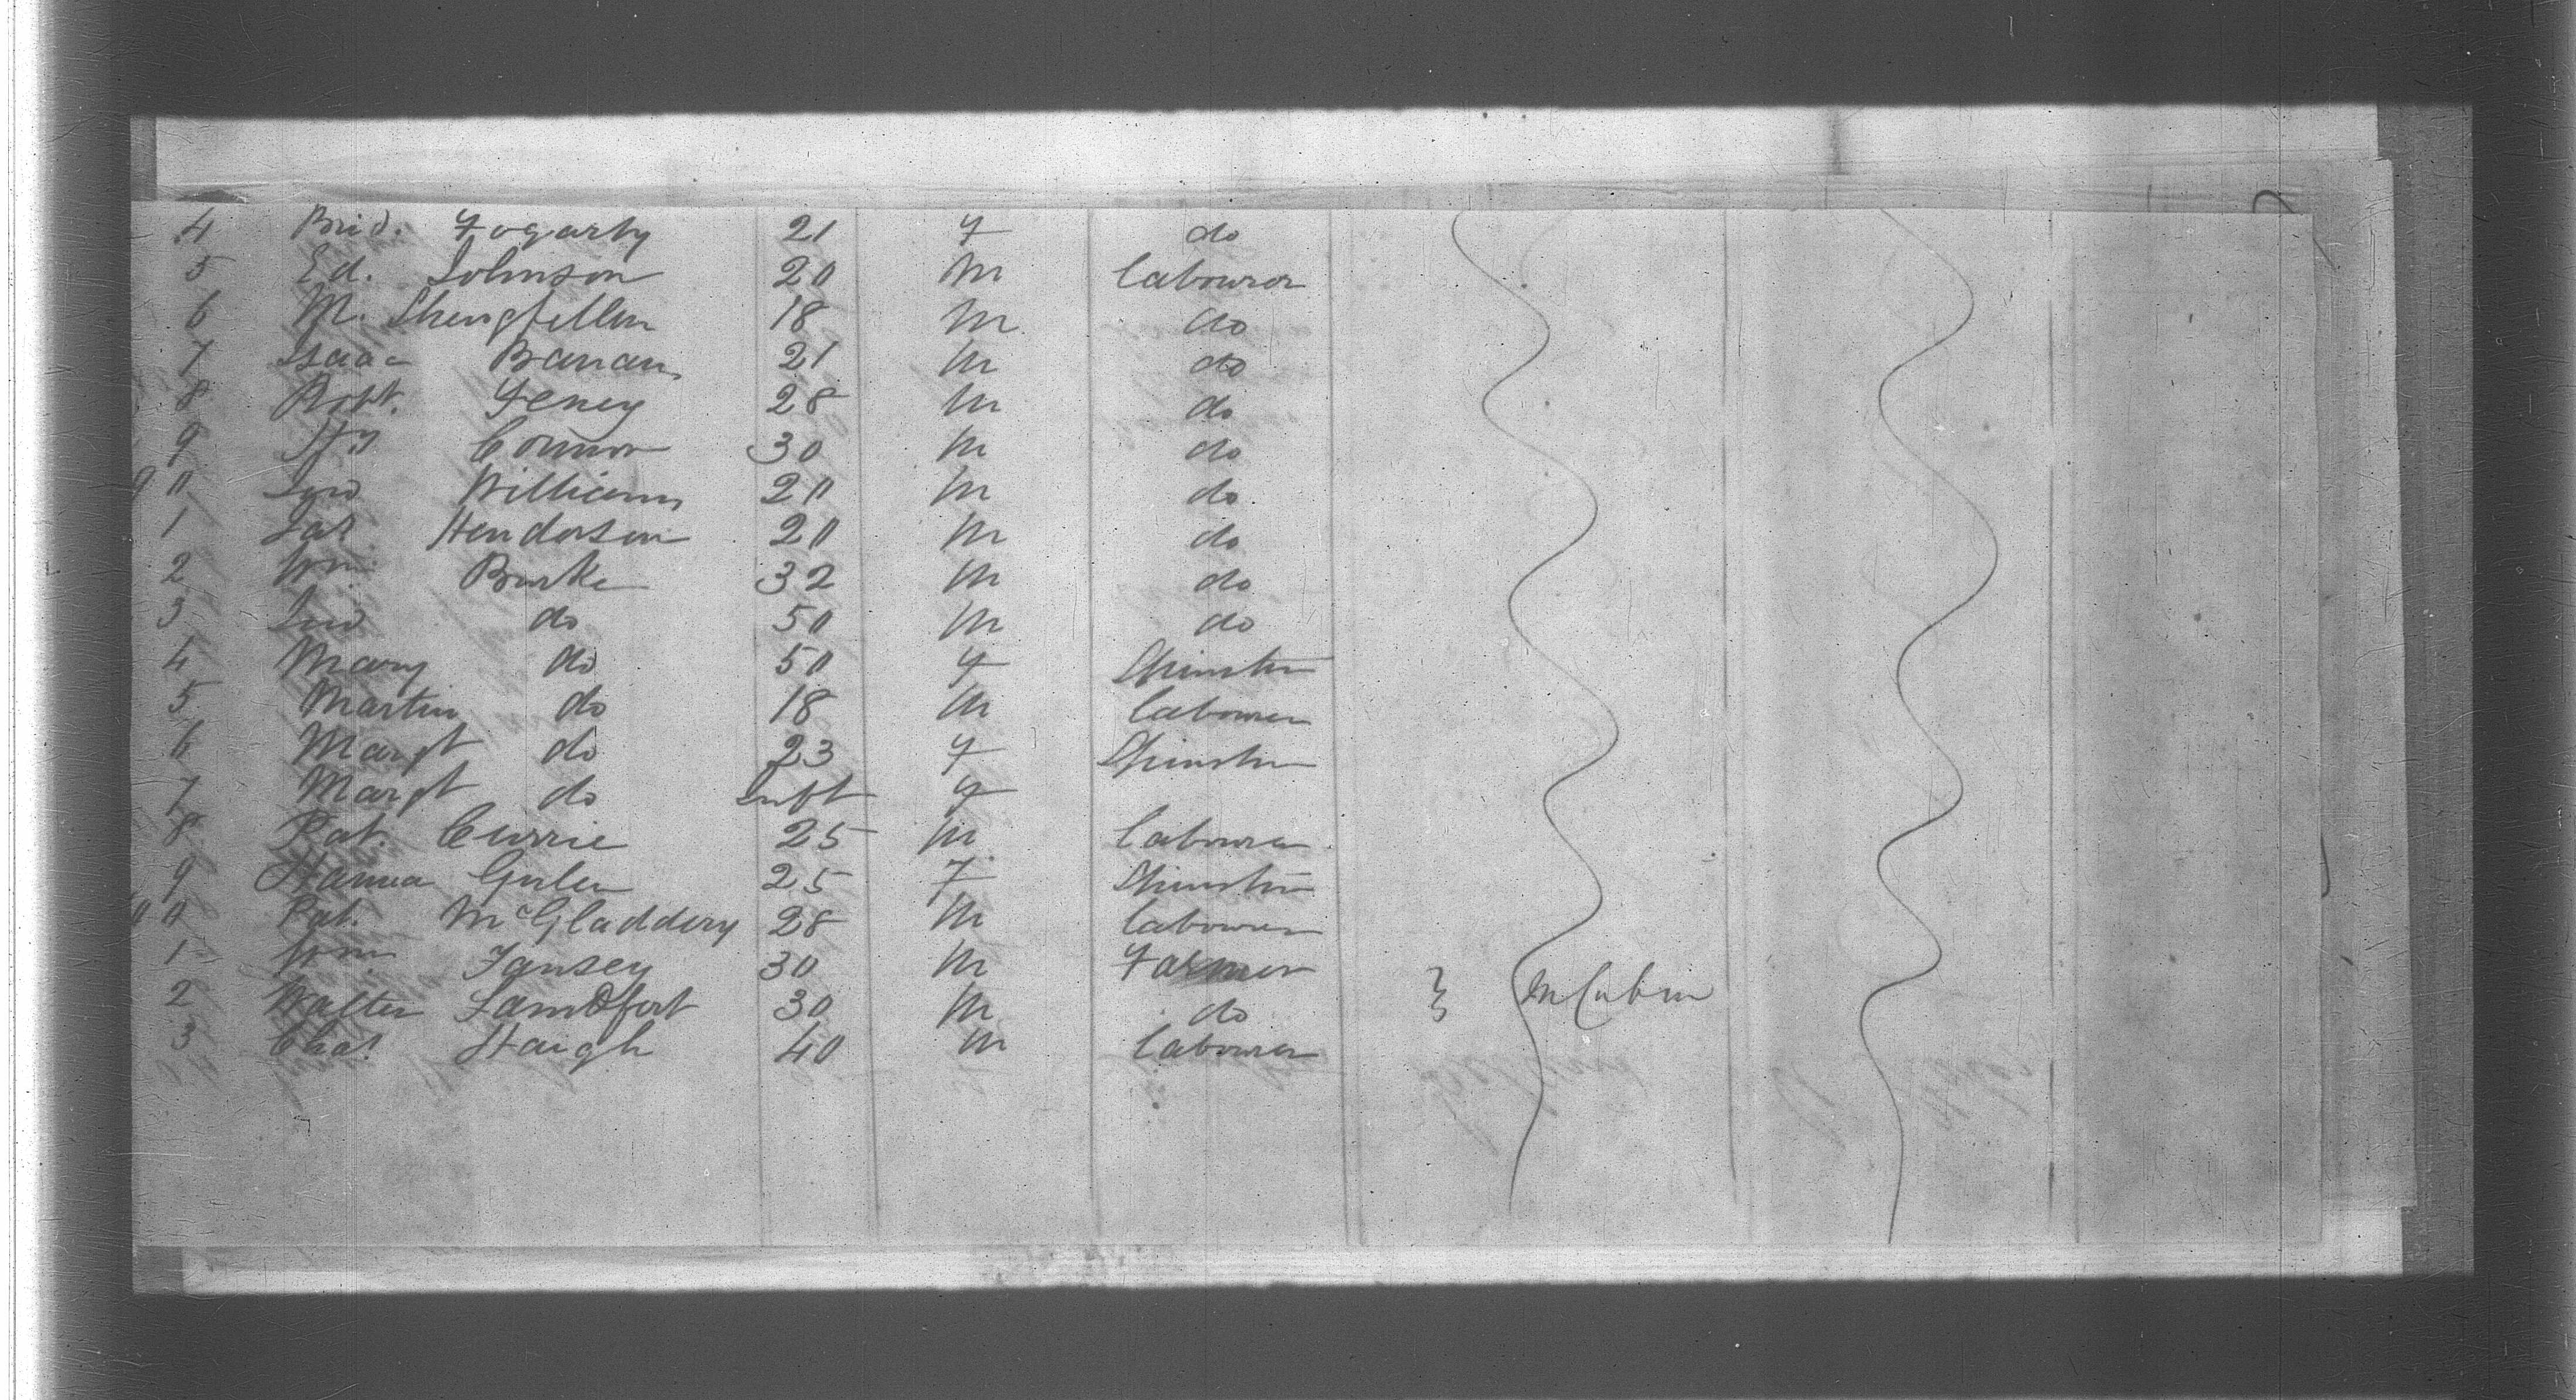 4 Brid. Fogarty 21 F do
5 Ed. Johnson 20 M labourer
6 M. 18 M do
7 Isaac Banan 21 M do
8 Robt. Feney 28 M do
9 Hy Connor 30 M do
90 Jno Williams 20 M do
1 Jas Henderson 20 M do
2 Wm Burke 32 M do
3 Jno do 50 M do
4 Mary do 50 F Spinster
5 Martin do 18 M labourer
6 Margt do 23 F Spinster
7 Margt do Inft F
8 Pat. Currie 25 M labourer
9 Hanna 25 F Spinster
00 Pat. McGladdery 28 M labourer
1 Wm Tansey 30 M Farmer
2 Walter 30 M do } In Cabin
3 Chas Haigh 40 M labourer